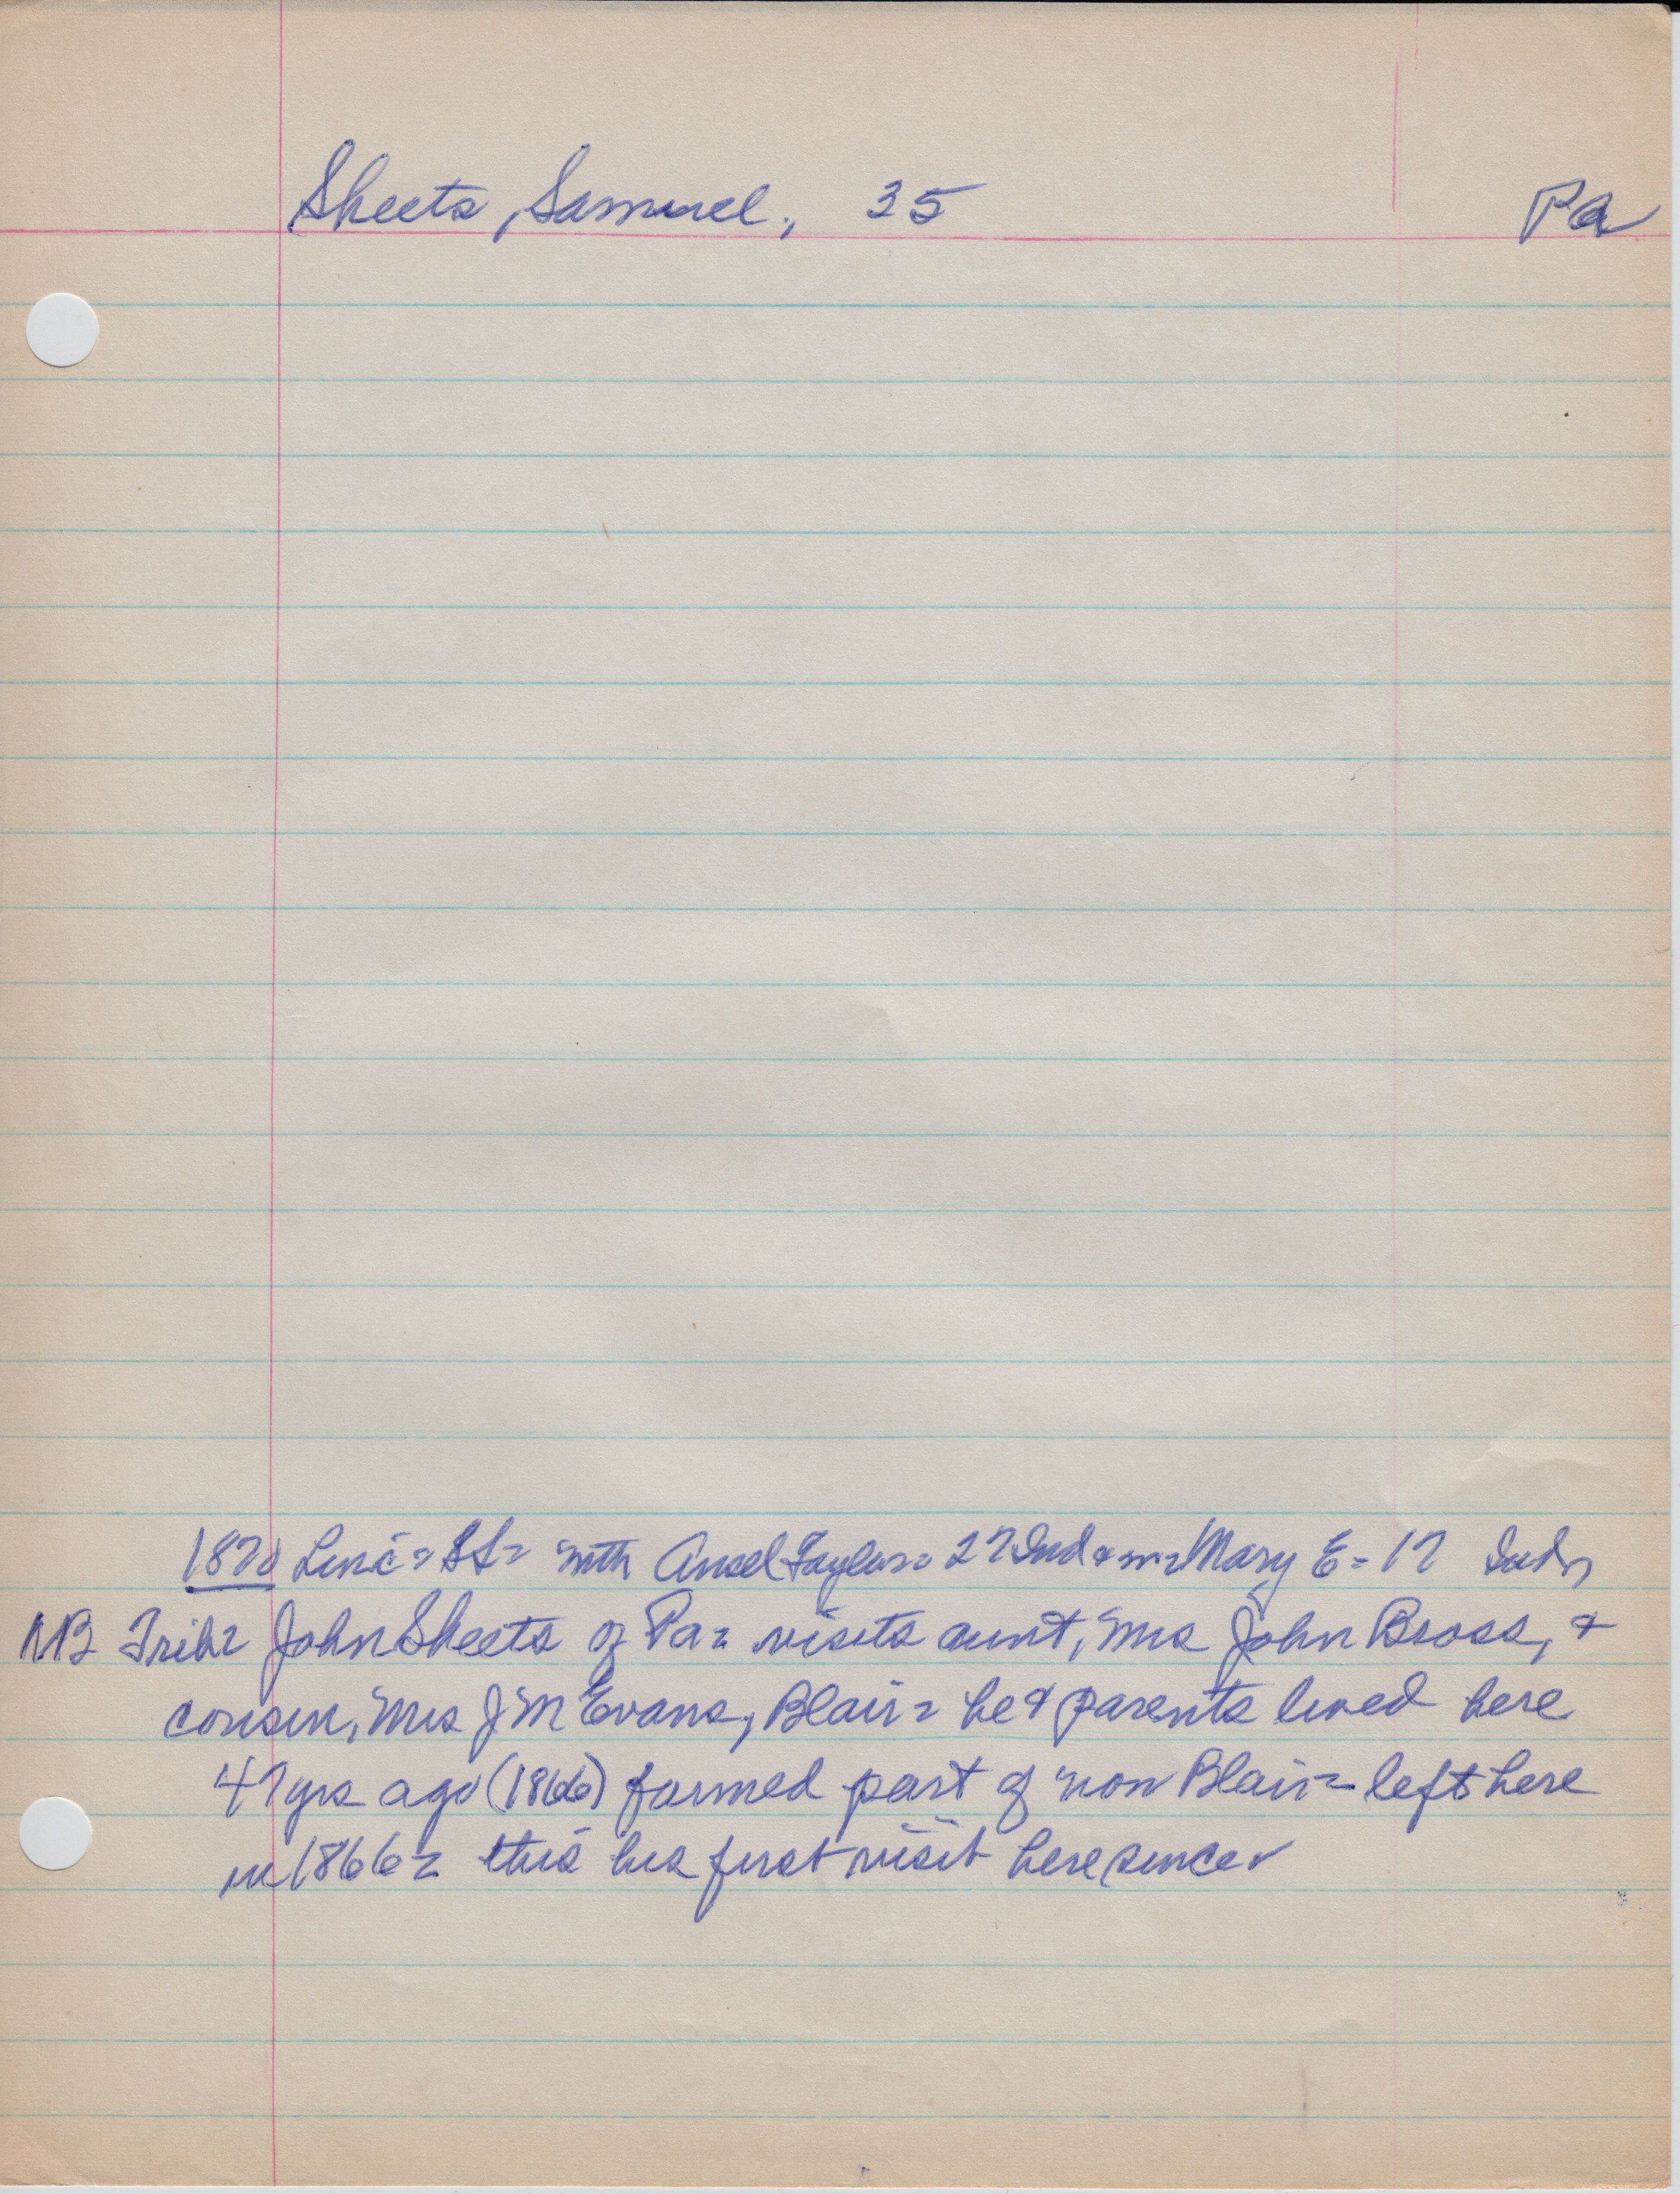 Sheets, Samuel, 35 Pa
1870 Linc = St = with Ansel Taylor = 27 Ind & w = Mary E = 17 Ind,
NB Trib = John Sheets of Pa = visits aunt, Mrs John Bross, &
cousin, Mrs J M Evans, Blair = he & parents lived here
47 yrs ago (1866) farmed part of now Blair = left here
in 1866 = this his first visit here since